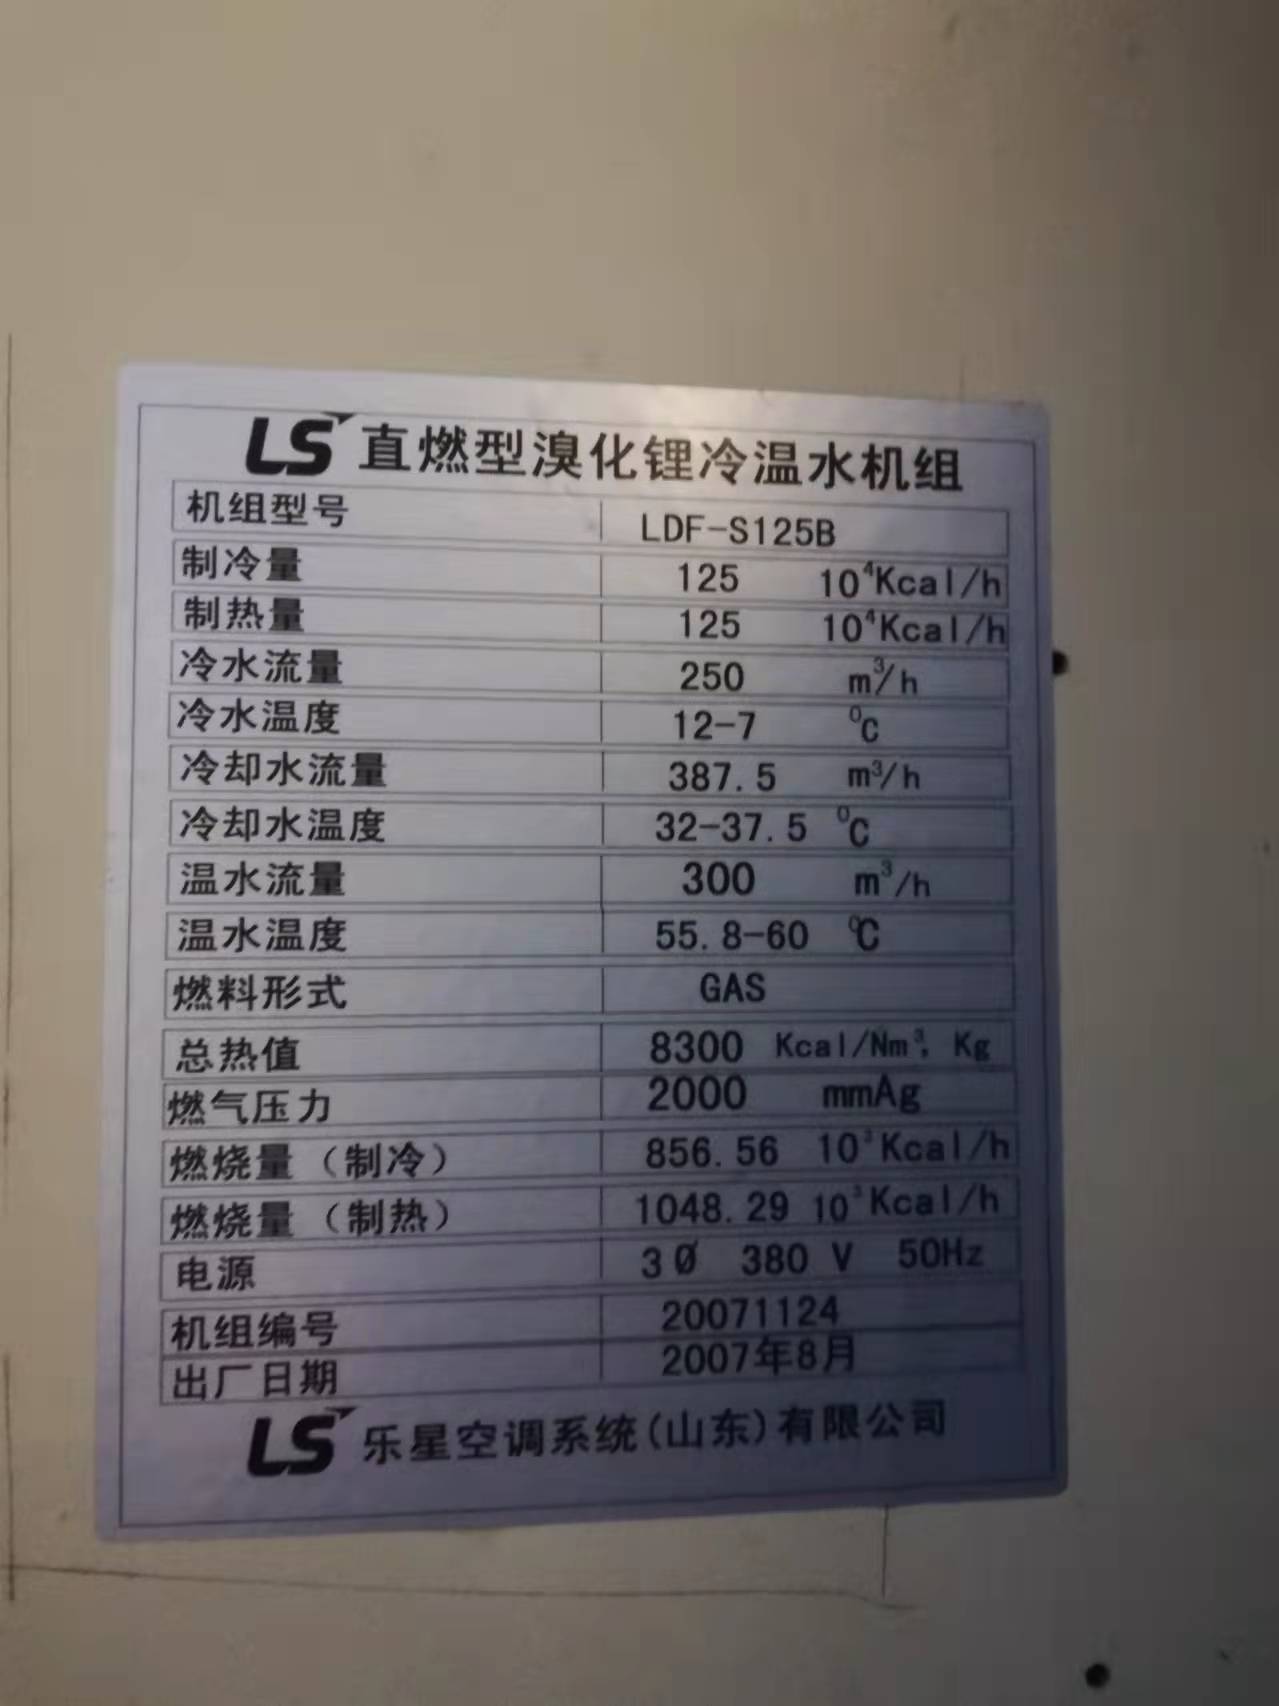 LS 直燃型溴化锂冷温水机组
机组型号 LDF-S125B
制冷量 125 10⁴Kcal/h
制热量 125 10⁴Kcal/h
冷水流量 250 m³/h
冷水温度 12-7 ⁰C
冷却水流量 387.5 m³/h
冷却水温度 32-37.5 ⁰C
温水流量 300 m³/h
温水温度 55.8-60 ⁰C
燃料形式 GAS
总热值 8300 Kcal/Nm³, Kg
燃气压力 2000 mmAg
燃烧量（制冷） 856.56 10³Kcal/h
燃烧量（制热） 1048.29 10³Kcal/h
电源 3Ø 380 V 50Hz
机组编号 20071124
出厂日期 2007年8月
LS 乐星空调系统(山东)有限公司